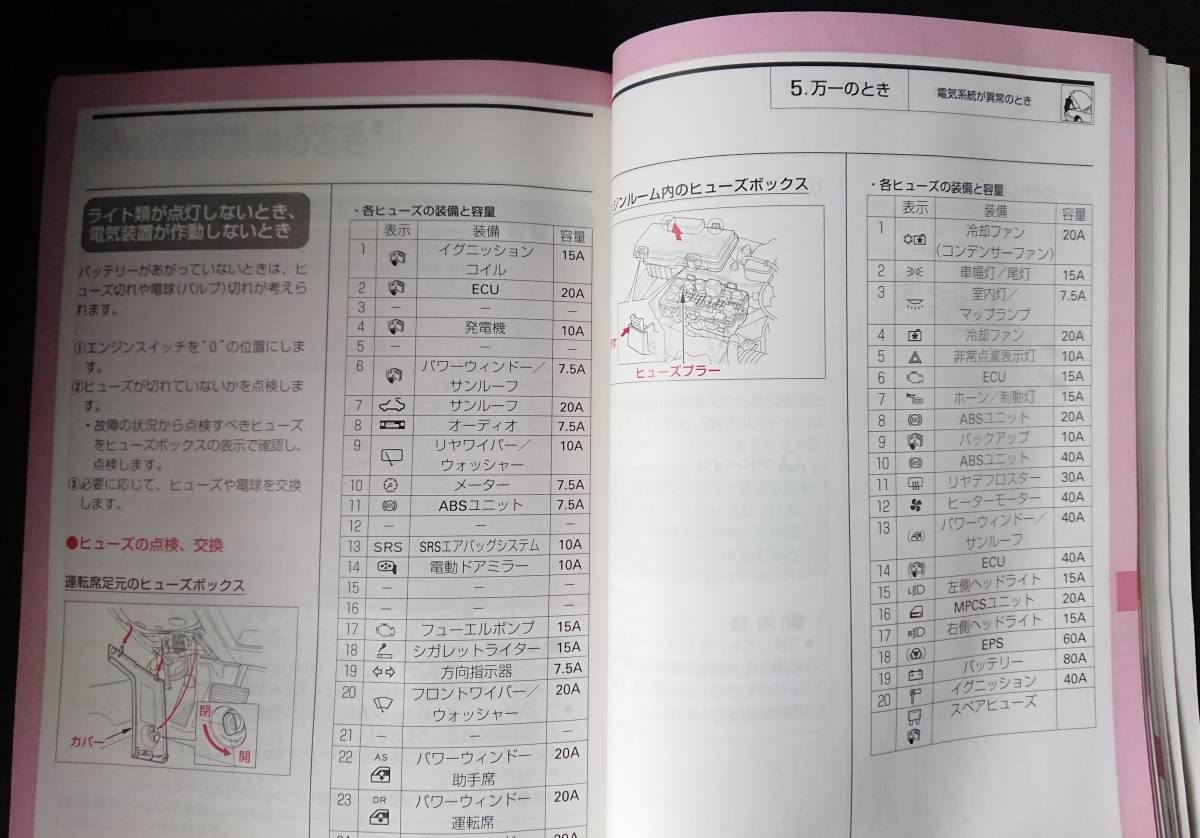 ライト類が点灯しないとき、
電気装置が作動しないとき
バッテリーがあがっていないときは、ヒ
ューズ切れや電球(バルブ)切れが考えら
れます。
①エンジンスイッチを"0"の位置にしま
す。
②ヒューズが切れていないかを点検しま
す。
・故障の状況から点検すべきヒューズ
をヒューズボックスの表示で確認し、
点検します。
③必要に応じて、ヒューズや電球を交換
します。
●ヒューズの点検、交換
運転席足元のヒューズボックス
カバー
閉
開
・各ヒューズの装備と容量
表示 装備 容量
1 イグニッション
コイル 15A
2 ECU 20A
3 － － －
4 発電機 10A
5 － － －
6 パワーウィンドー／
サンルーフ 7.5A
7 サンルーフ 20A
8 オーディオ 7.5A
9 リヤワイパー／
ウォッシャー 10A
10 メーター 7.5A
11 ABSユニット 7.5A
12 － － －
13 SRS SRSエアバッグシステム 10A
14 電動ドアミラー 10A
15 － － －
16 － － －
17 フューエルポンプ 15A
18 シガレットライター 15A
19 方向指示器 7.5A
20 フロントワイパー／
ウォッシャー 20A
21 － － －
22 AS パワーウィンドー
助手席 20A
23 DR パワーウィンドー
運転席 20A
5.万一のとき 電気系統が異常のとき
ジンルーム内のヒューズボックス
ヒューズプラー
・各ヒューズの装備と容量
表示 装備 容量
1 冷却ファン
(コンデンサーファン) 20A
2 車幅灯／尾灯 15A
3 室内灯／
マップランプ 7.5A
4 冷却ファン 20A
5 非常点滅表示灯 10A
6 ECU 15A
7 ホーン／制動灯 15A
8 ABSユニット 20A
9 バックアップ 10A
10 ABSユニット 40A
11 リヤデフロスター 30A
12 ヒーターモーター 40A
13 パワーウィンドー／
サンルーフ 40A
14 ECU 40A
15 左側ヘッドライト 15A
16 MPCSユニット 20A
17 右側ヘッドライト 15A
18 EPS 60A
19 バッテリー 80A
20 イグニッション 40A
スペアヒューズ